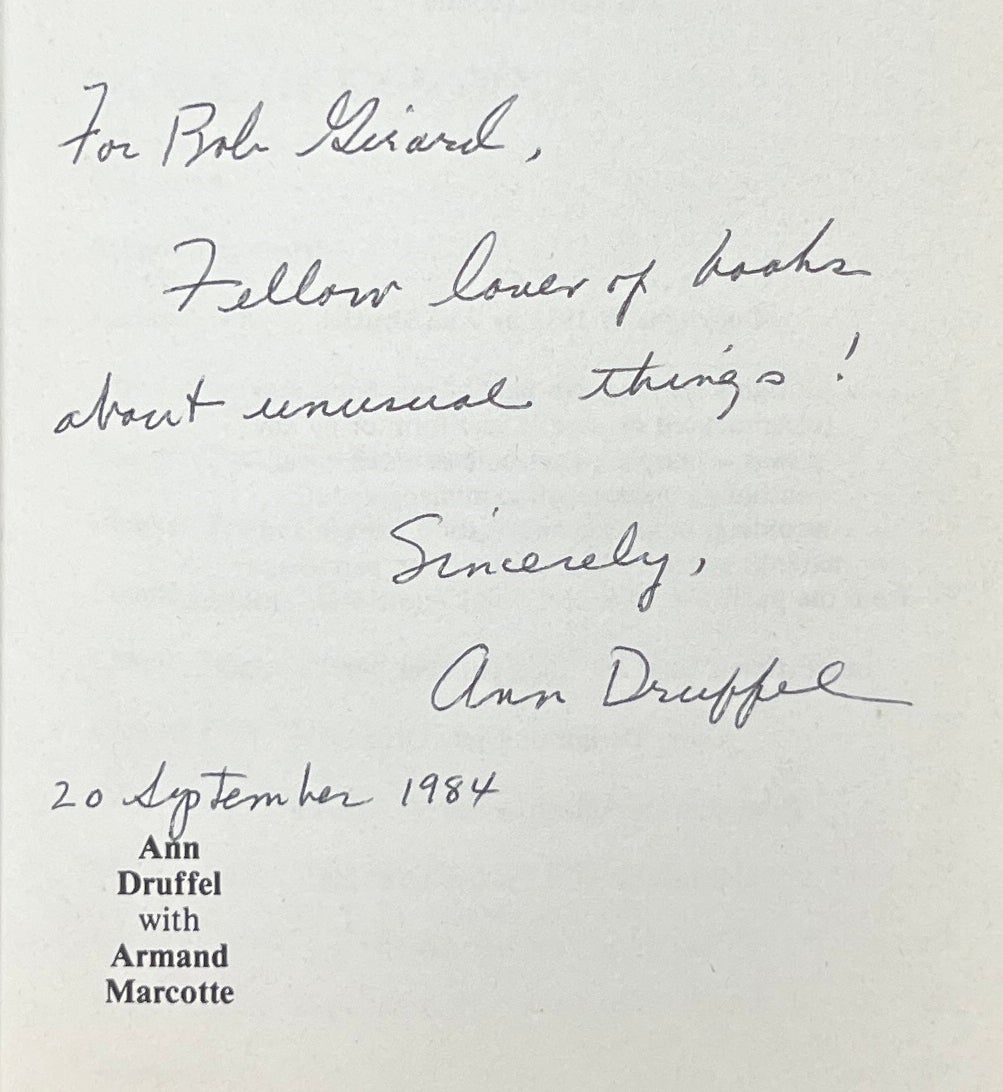 For Bob Girard,
Fellow lover of books
about unusual things!
Sincerely,
Ann Druffel
20 September 1984
Ann
Druffel
with
Armand
Marcotte